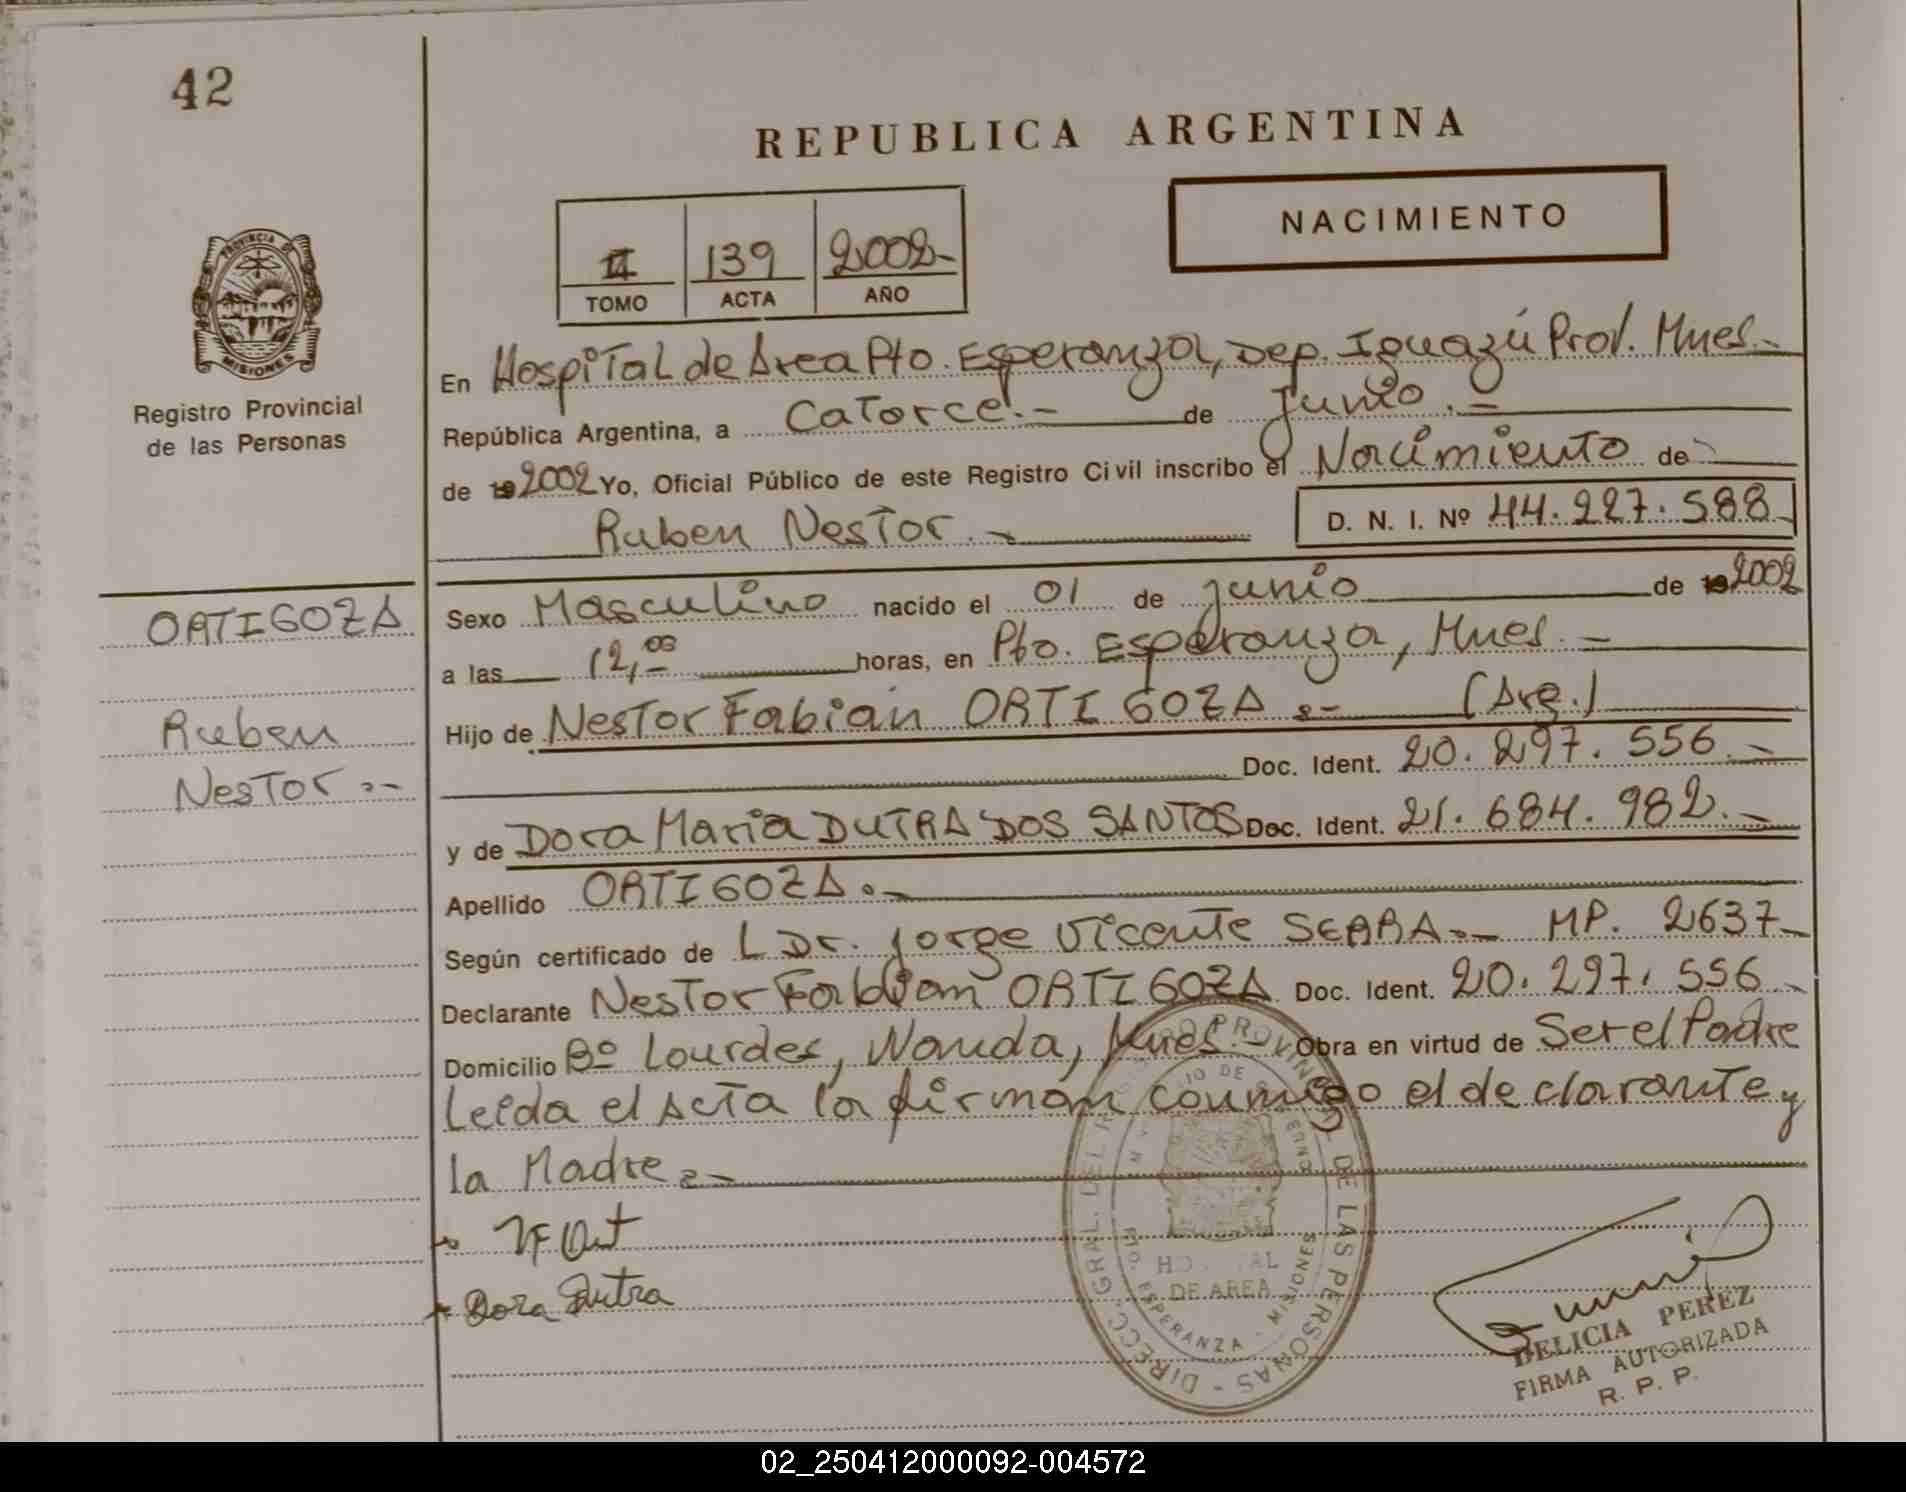 42
REPUBLICA ARGENTINA
NACIMIENTO
II 139 2002-
TOMO ACTA AÑO
PROVINCIA DE
MISIONES
Registro Provincial
de las Personas
En Hospital de Area Pto. Esperanza, Dep. Iguazú Prov. Mnes.-
República Argentina, a Catorce.- de junio.-
de 192002 Yo, Oficial Público de este Registro Civil inscribo el Nacimiento de
Ruben Nestor.- D. N. I. Nº 44.227.588-
ORTIGOZA
Ruben
Nestor.-
Sexo Masculino nacido el 01 de junio de 192002
a las 12,00 horas, en Pto. Esperanza, Mnes.-
Hijo de Nestor Fabián ORTIGOZA.- (Arg.)
Doc. Ident. 20.297.556.-
y de Dora Maria DUTRA DOS SANTOS Doc. Ident. 21.684.982.-
Apellido ORTIGOZA.-
Según certificado de L Dr. Jorge Vicente SERRA.- MP. 2637-
Declarante Nestor Fabian ORTIGOZA Doc. Ident. 20.297.556-
Domicilio Bº Lourdes, Wanda, Mnes. Obra en virtud de Ser el Padre
Leída el acta la firman conmigo el declarante y
la Madre.-
NF Ort
Dora Dutra
DIRECC. GRAL. DEL PROVINCIAL DE LAS PERSONAS
HOSPITAL
DE AREA
PTO. ESPERANZA - MISIONES
DELICIA PEREZ
FIRMA AUTORIZADA
R. P. P.
02_250412000092-004572